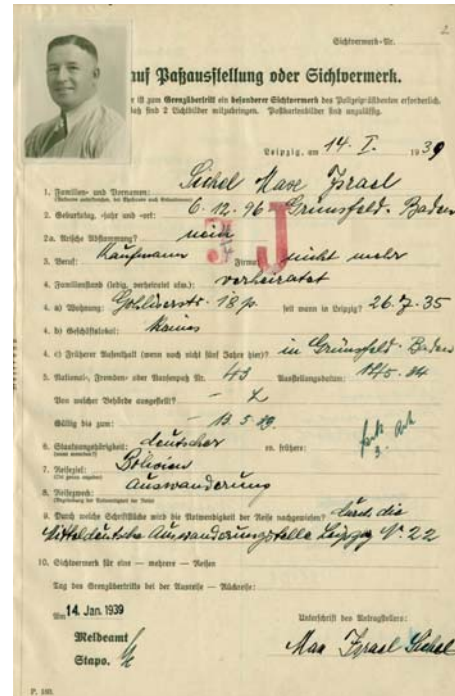 2
Sichtvermerk-Nr.
auf Paßausstellung oder Sichtvermerk.
er ist zum Grenzübertritt ein besonderer Sichtvermerk des Polizeipräsidenten erforderlich.
sind 2 Lichtbilder mitzubringen. Postkartenbilder sind unzulässig.
Leipzig, am 14. I. 1939
1. Familien- und Vornamen: Sichel Max Israel
2. Geburtstag, -jahr und -ort: 6. 12. 96 Grünsfeld-Baden
2a. Arische Abstammung? nein
J
3. Beruf: Kaufmann Firma: nicht mehr
4. Familienstand (ledig, verheiratet usw.): verheiratet
4. a) Wohnung: Gohliserstr. 18 p. seit wann in Leipzig? 26.7.35
4. b) Geschäftslokal: keines
4. c) Früherer Aufenthalt (wenn noch nicht fünf Jahre hier)? in Grünsfeld-Baden
5. National-, Fremden- oder Auslandspaß Nr. 43 Ausstellungsdatum:
Von welcher Behörde ausgestellt?
Gültig bis zum: 13.5.29.
6. Staatsangehörigkeit: deutscher ev. frühere:
7. Reiseziel: Bolivien
8. Reisezweck: Auswanderung
9. Durch welche Schriftstücke wird die Notwendigkeit der Reise nachgewiesen? durch die
Mitteldeutsche Auswanderungstelle Leipzig N. 22
10. Sichtvermerk für eine — mehrere — Reisen
Tag des Grenzübertritts bei der Ausreise — Rückreise:
Am 14. Jan. 1939
Unterschrift des Antragstellers:
Meldeamt
Stapo.
Max Israel Sichel
P. 160.